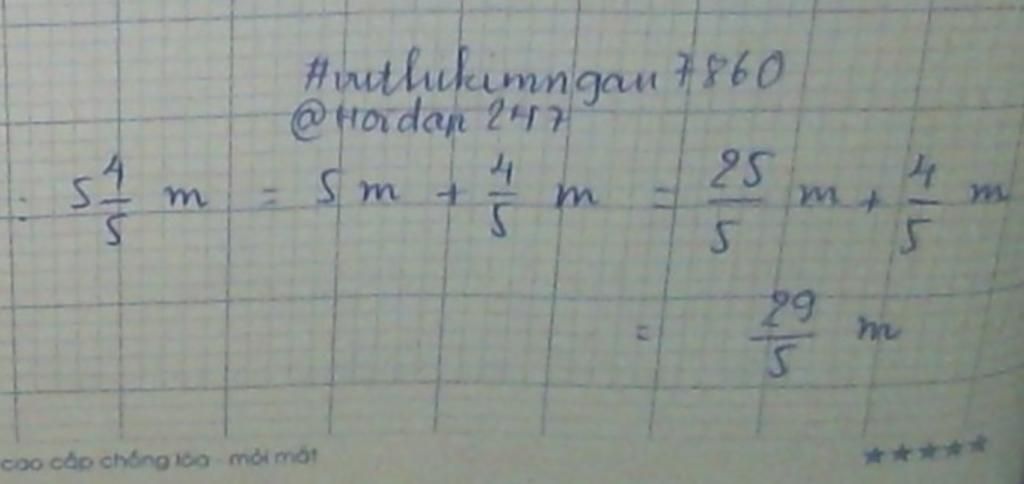 #vuthukimngan7860
@Hoidap247
: 5 4/5 m = 5 m + 4/5 m = 25/5 m + 4/5 m
= 29/5 m
cao cấp chống lóa - mỏi mắt